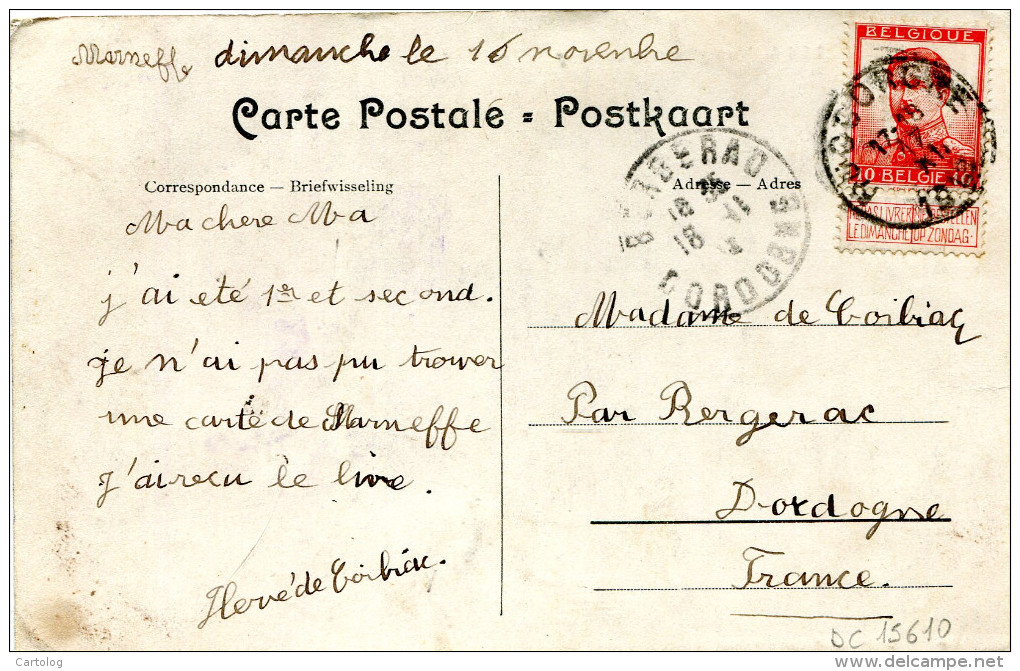 Marneffe dimanche le 16 novenbre
BELGIQUE
10 BELGIE 10
NE PAS LIVRER NIET BESTELLEN
LE DIMANCHE OP ZONDAG.
Carte Postale = Postkaart
Correspondance — Briefwisseling
Adresse — Adres
BERGERAC
DORDOGNE
18
Ma chere Ma
j'ai eté 1er et second.
je n'ai pas pu trouver
une carte de Marneffe
J'ai reçu le livre.
Hervé de Corbiac.
Madame de Corbiac
Par Bergerac
Dordogne
France.
DC 15610
Cartolog
delcampe.net